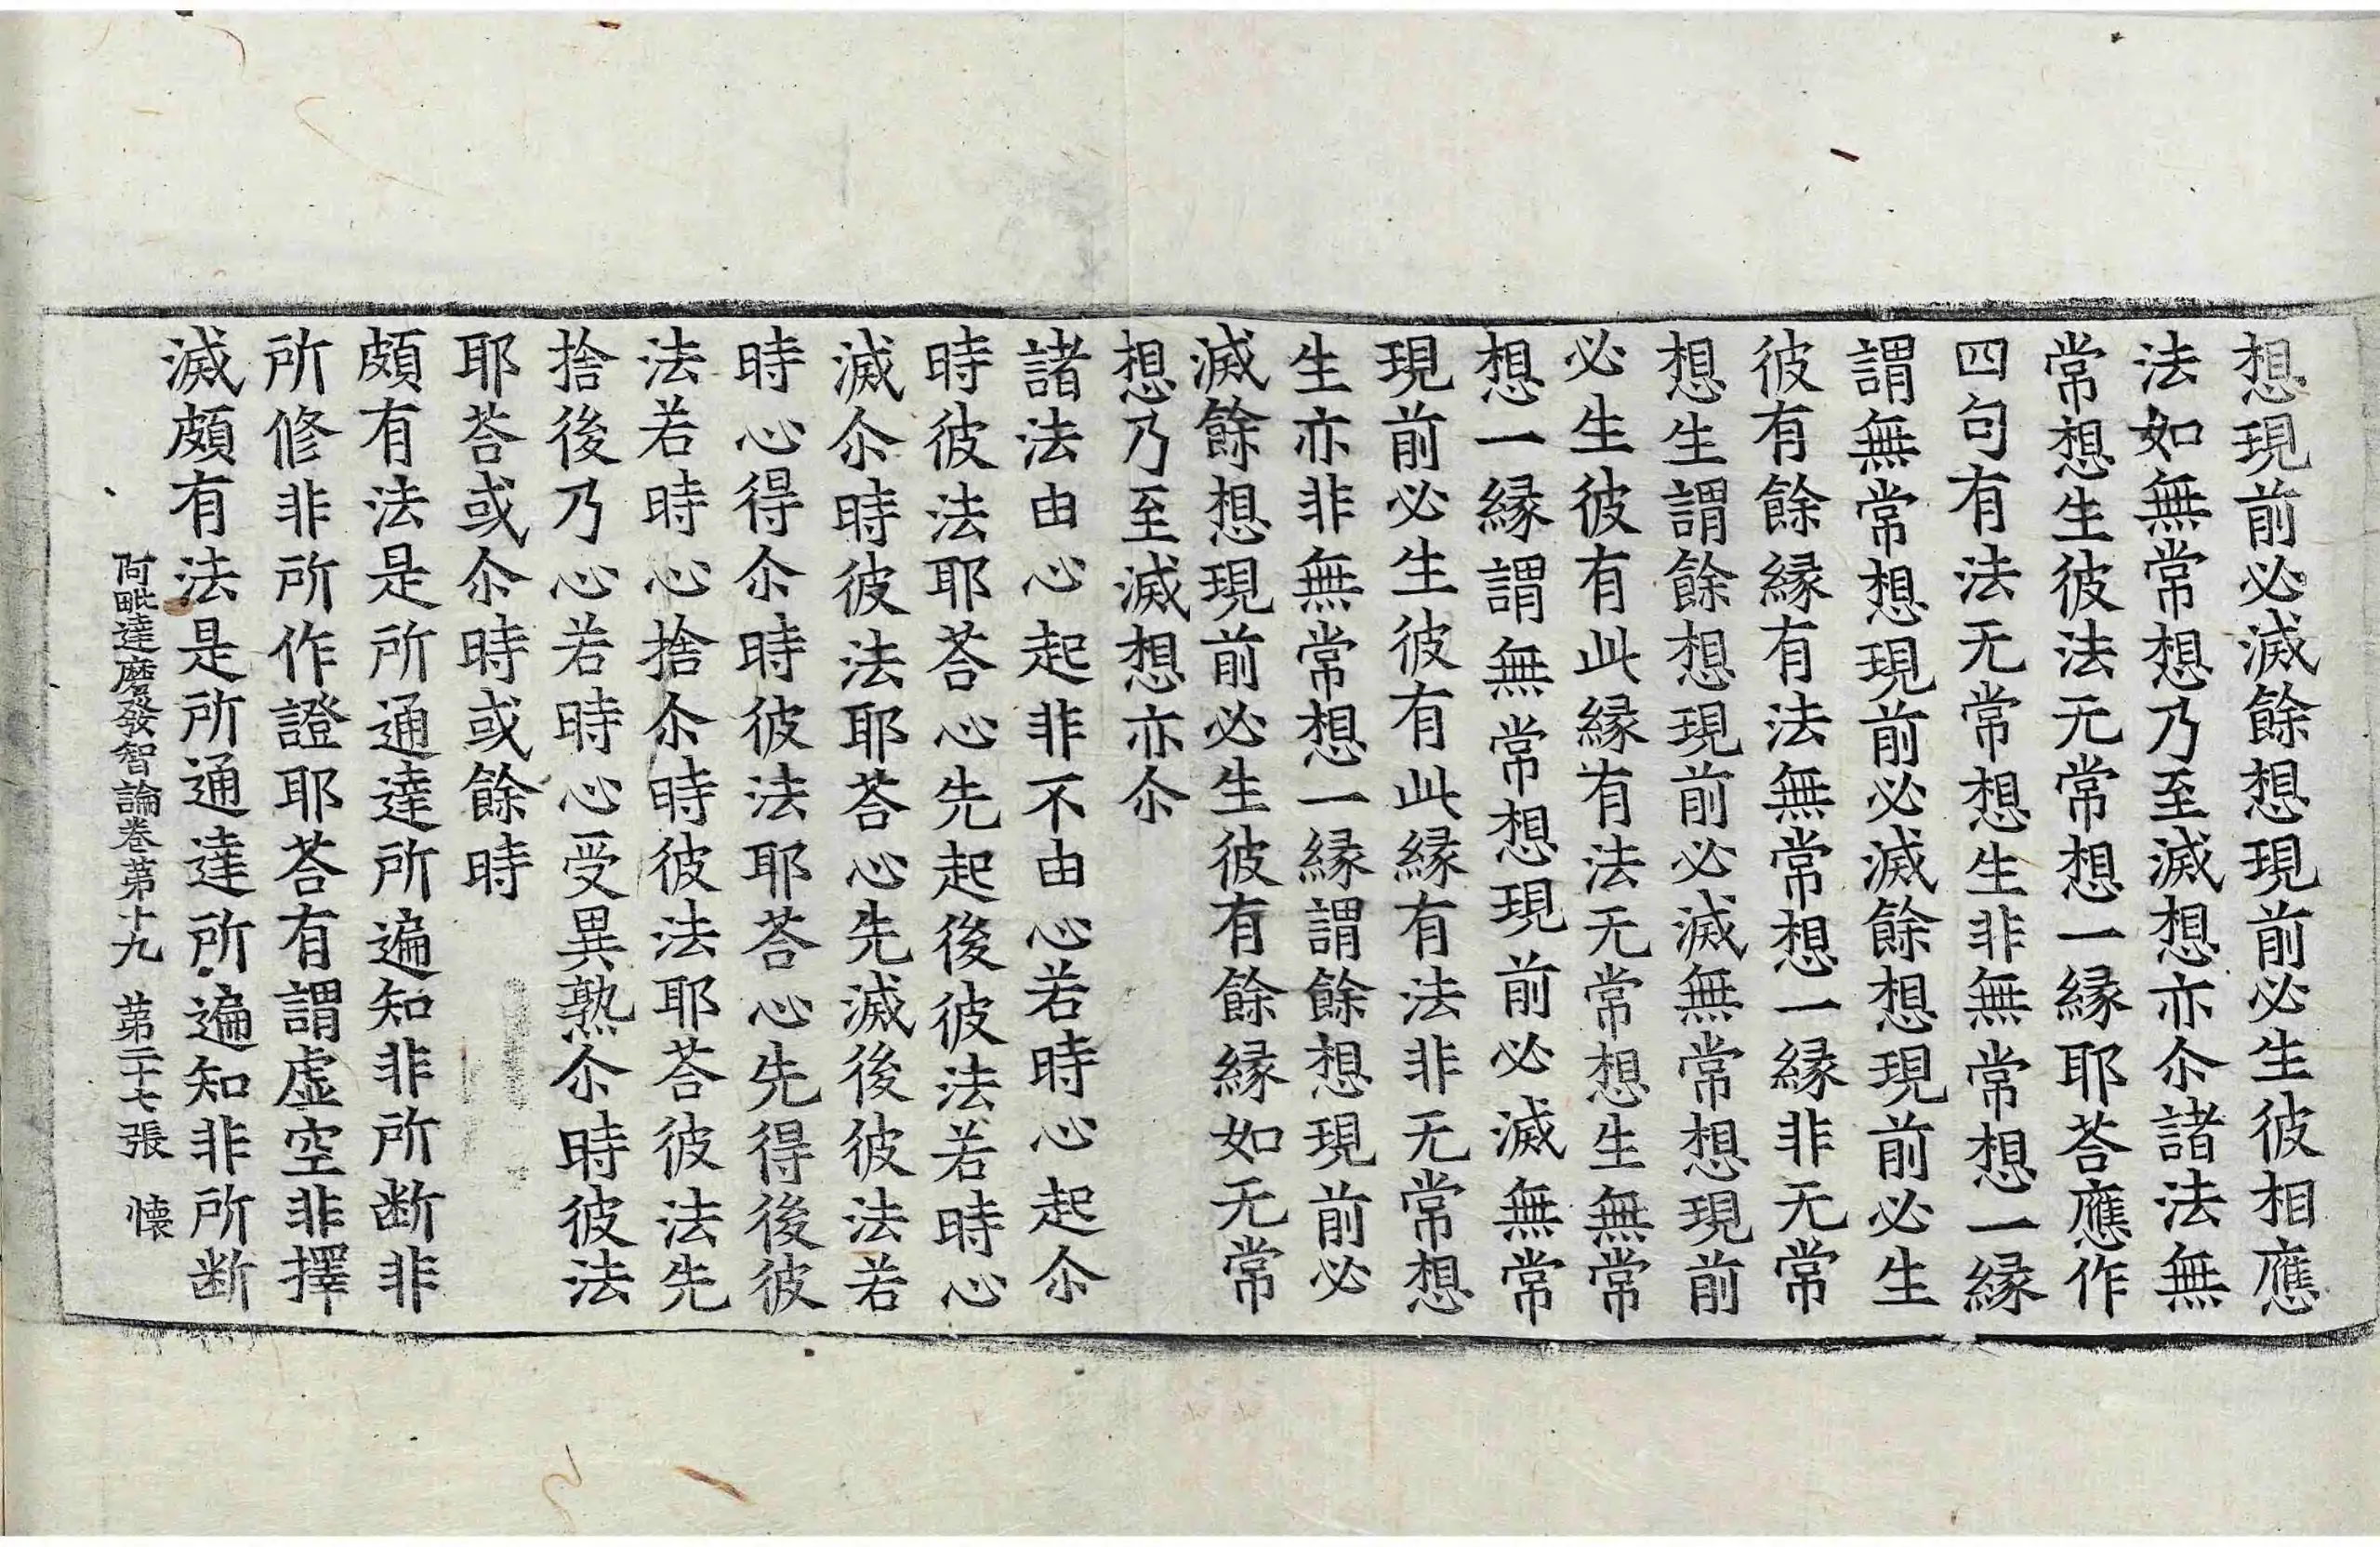 想現前必滅餘想現前必生彼相應
法如無常想乃至滅想亦尒諸法無
常想生彼法无常想一縁耶荅應作
四句有法无常想生非無常想一縁
謂無常想現前必滅餘想現前必生
彼有餘縁有法無常想一縁非无常
想生謂餘想現前必滅無常想現前
必生彼有此縁有法无常想生無常
想一縁謂無常想現前必滅無常
現前必生彼有此縁有法非无常想
生亦非無常想一縁謂餘想現前必
滅餘想現前必生彼有餘縁如无常
想乃至滅想亦尒
諸法由心起非不由心若時心起尒
時彼法耶荅心先起後彼法若時心
滅尒時彼法耶荅心先滅後彼法若
時心得尒時彼法耶荅心先得後彼
法若時心捨尒時彼法耶荅彼法先
捨後乃心若時心受異熟尒時彼法
耶荅或尒時或餘時
頗有法是所通達所遍知非所断非
所修非所作證耶荅有謂虚空非擇
滅頗有法是所通達所遍知非所断
阿毗達磨發智論卷苐十九 苐二十七張 懐